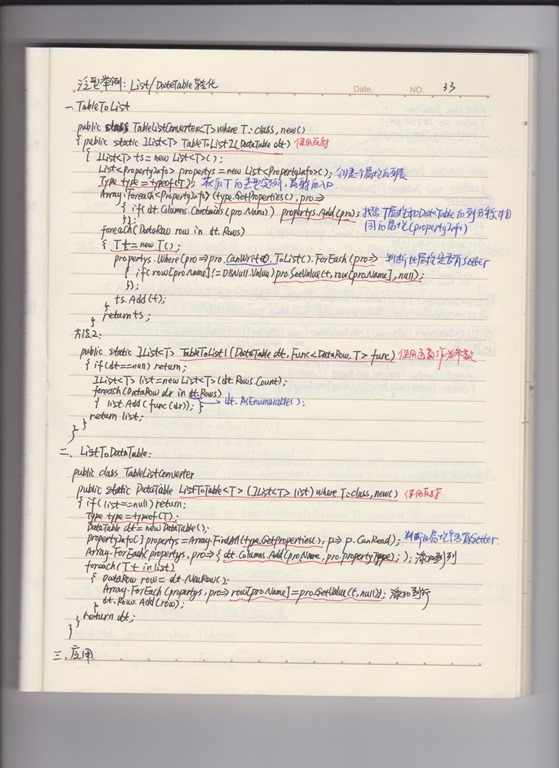 泛型举例: List/DateTable 转化
Date. NO. 33
一. TableToList
public class TableListConverter<T> where T: class, new()
{ public static IList<T> TableToList2(DataTable dt) 使用反射
{ IList<T> ts = new List<T>();
List<PropertyInfo> propertys = new List<PropertyInfo>(); 创建个属性的列表
Type type = typeof(T); 获取T的类型实例, 反射的入口
Array.Foreach<PropertyInfo>(type.GetProperties(), pro=>
{ if(dt.Columns.Contains(pro.Name)) propertys.Add(pro); 找出T属性和DataTable的列名称相
}); 同的属性(propertyInfo)
foreach(DataRow row in dt.Rows)
{ T t = new T();
propertys.Where(pro=>pro.CanWrite).ToList().ForEach(pro=> 判断此属性是否有Setter
{ if(row[pro.Name] != DBNull.Value) pro.SetValue(t, row[pro.Name], null);
});
ts.Add(t);
}
return ts;
}
方法2:
public static IList<T> TableToList1(DateTable dt, Func<DataRow, T> func) 使用函数作为参数
{ if(dt==null) return;
IList<T> list = new List<T>(dt.Rows.Count);
foreach(DataRow dr in dt.Rows)
{ list.Add(func(dr)); } dt.AsEnumerable();
return list;
}
}
二. ListToDataTable:
public class TableListConverter
public static DataTable ListToTable<T>(IList<T> list) where T: class, new() 使用反射
{ if(list==null) return;
Type type = typeof(T);
DataTable dt = new DataTable();
propertyInfo[] propertys = Array.FindAll(type.GetProperties(), p=> p.CanRead); 判断此属性是否有Getter.
Array.ForEach(propertys, pro=> { dt.Columns.Add(pro.Name, pro.propertyType); }); 添加到列
foreach(T t in list)
{ DataRow row = dt.NewRow();
Array.ForEach(propertys, pro=> row[pro.Name] = pro.GetValue(t, null)); 添加到行
dt.Rows.Add(row);
}
return dt;
}
}
三. 应用